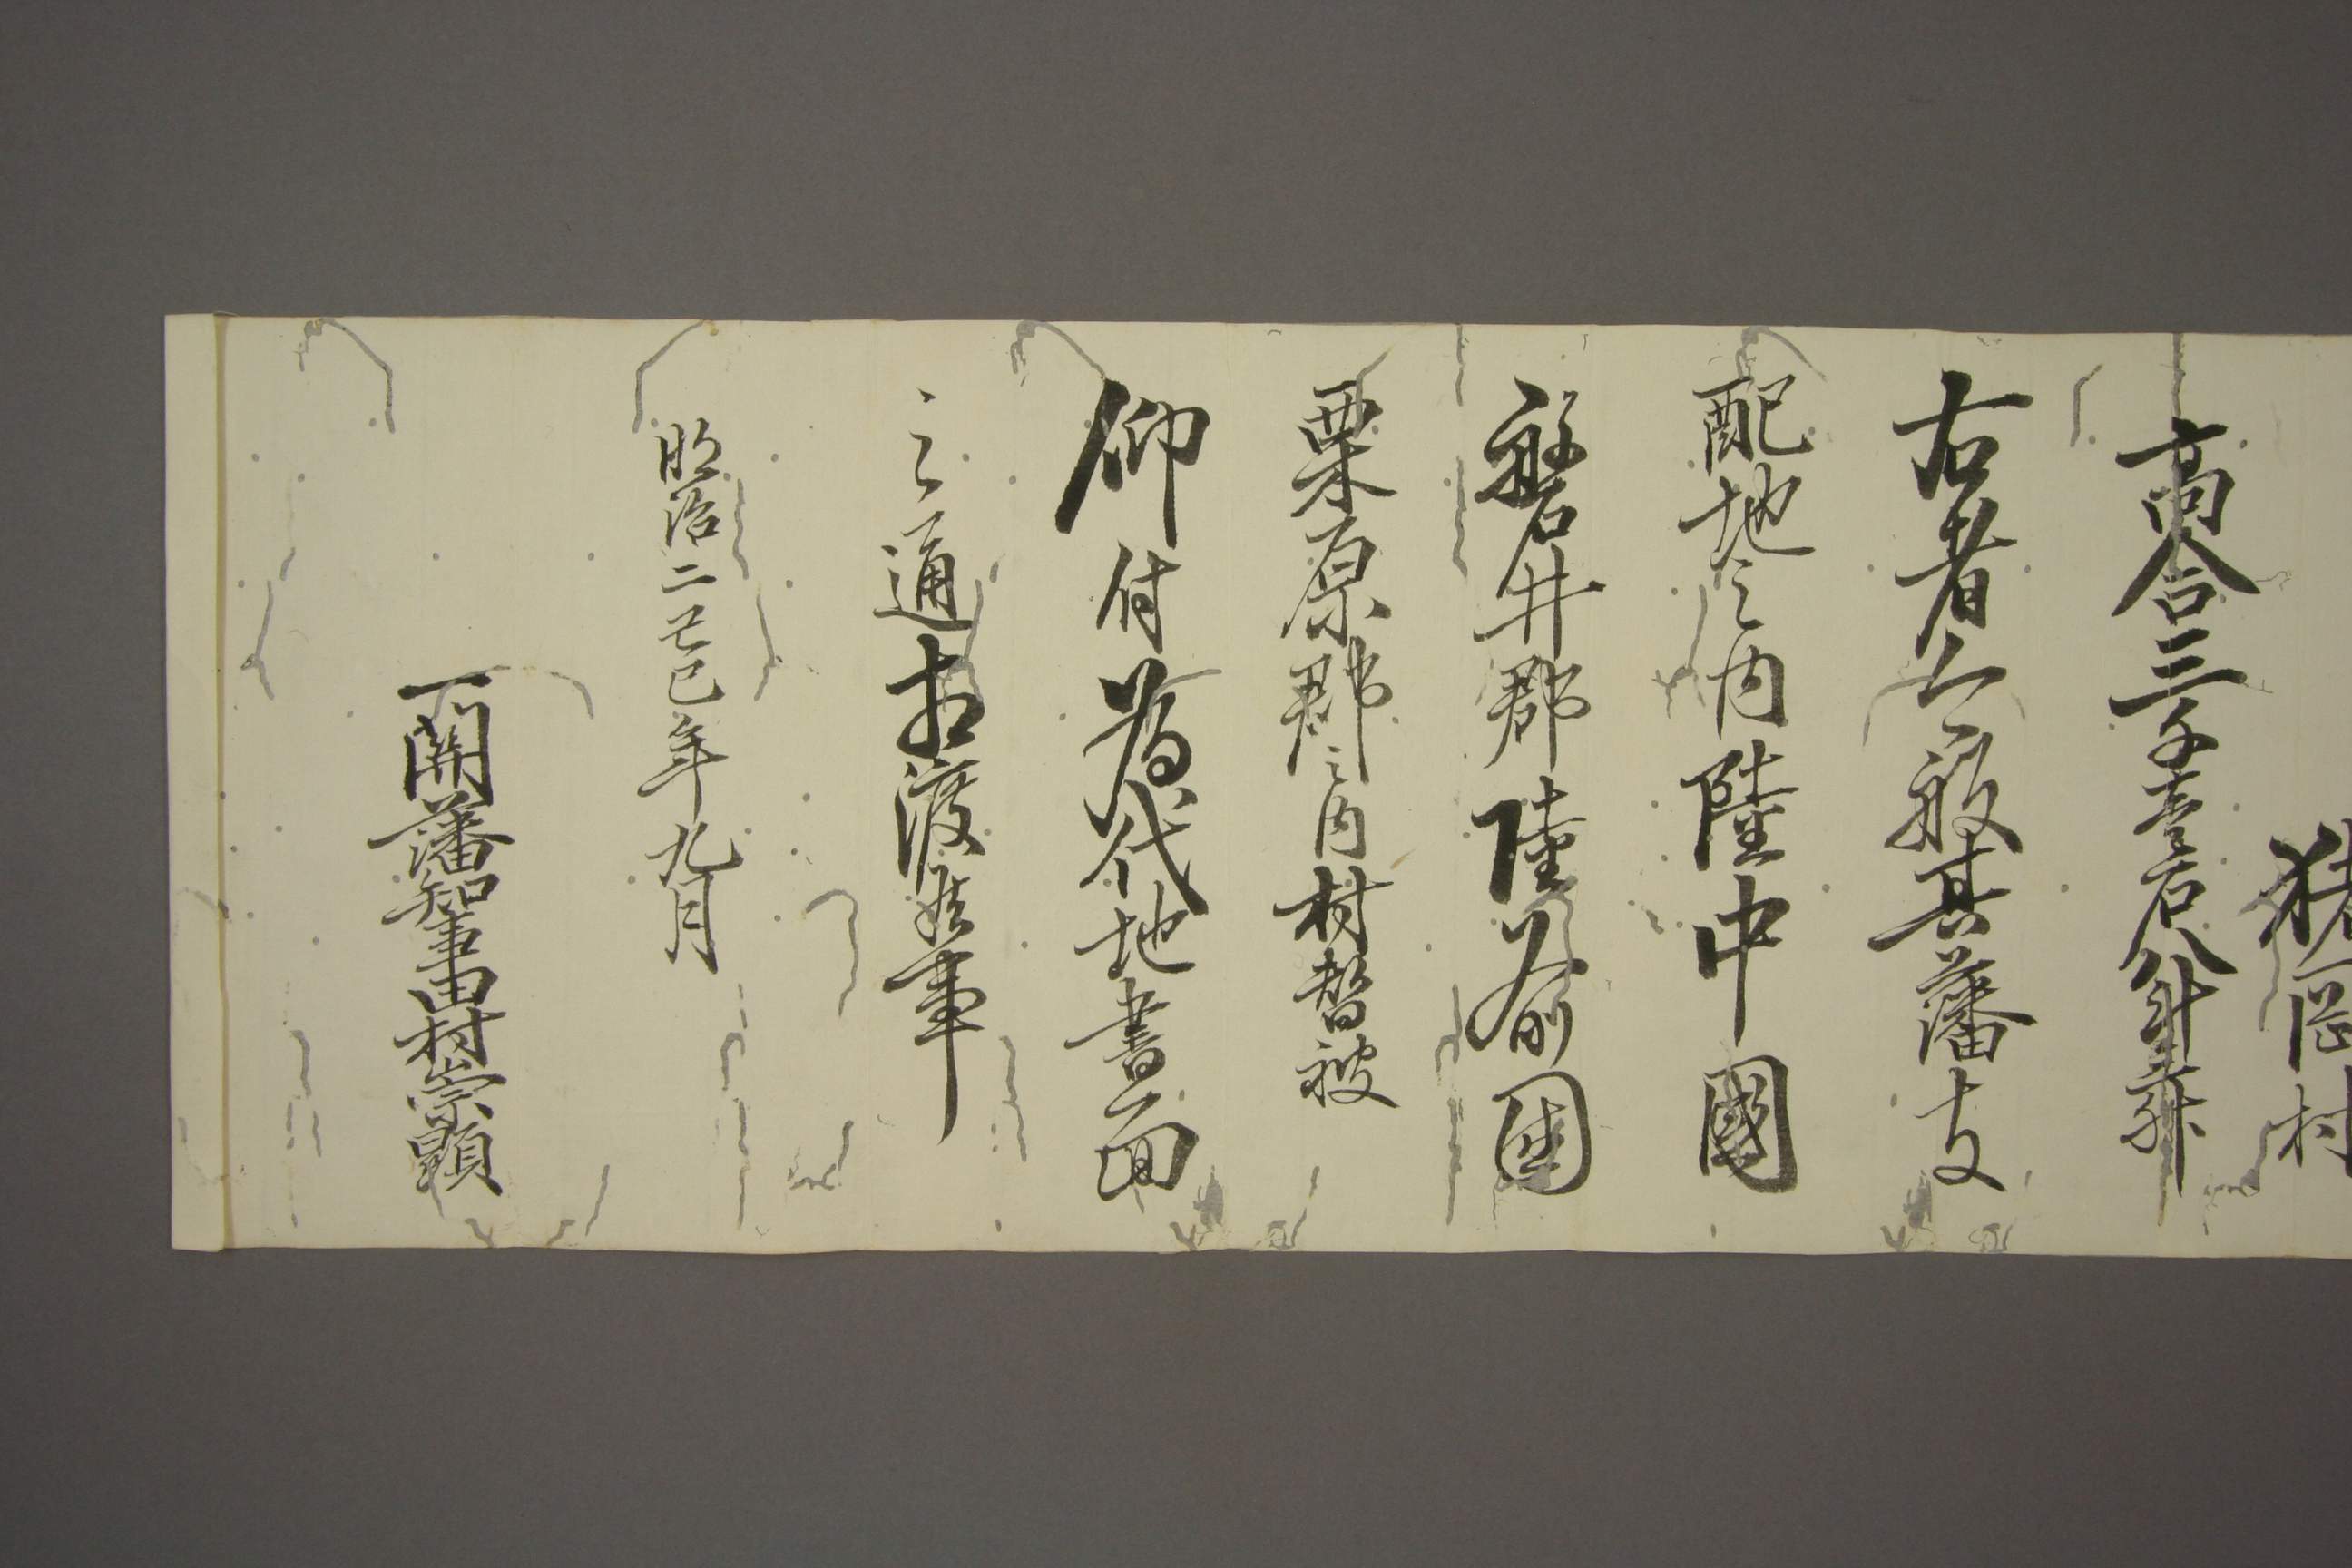 猪岡村
高合三千壱石八斗三升
右者今般其藩支
配地之内陸中國
磐井郡陸前國
栗原郡之内村替被
仰付為代地書面
之通相渡候事
明治二己巳年九月
一関藩知事田村崇顕